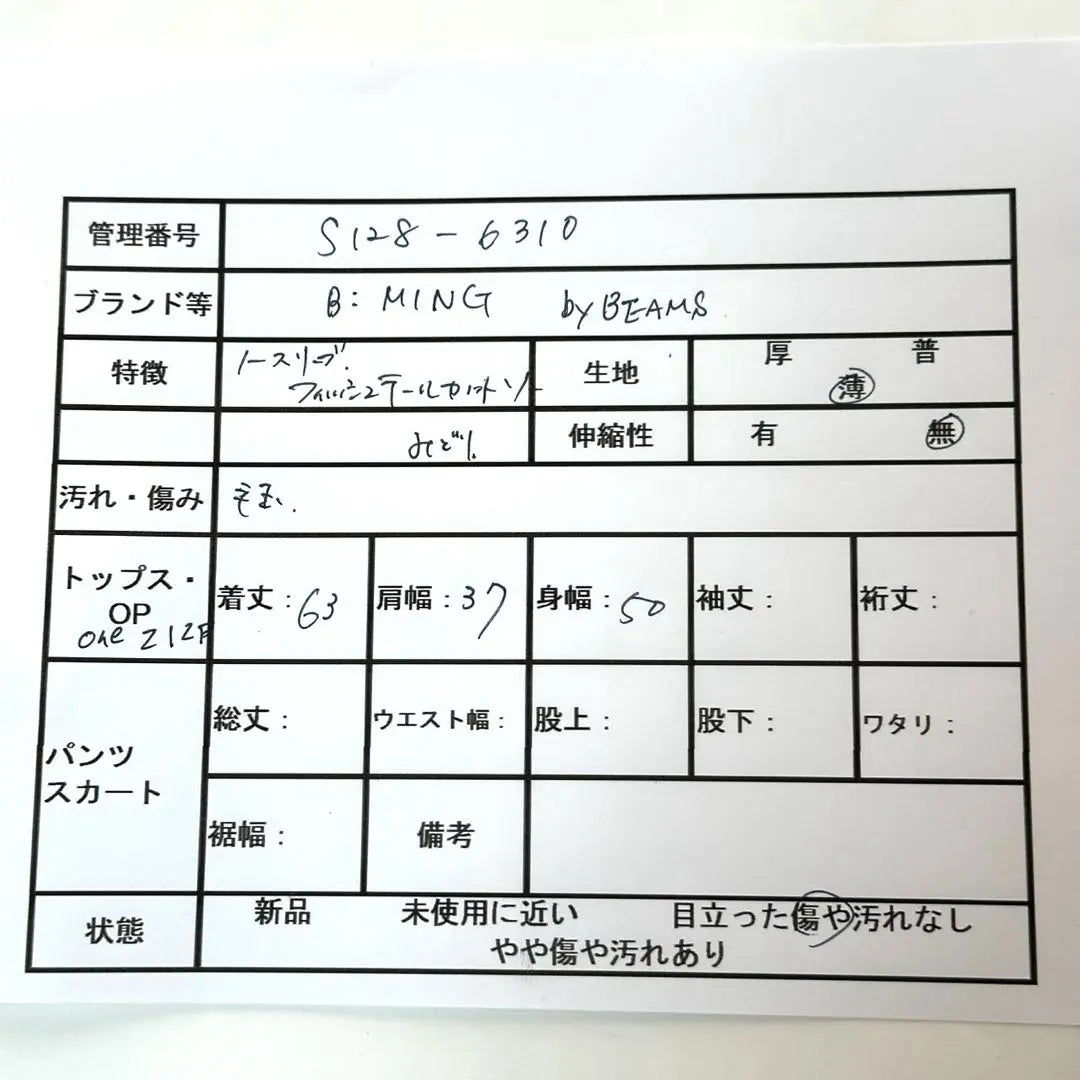 管理番号 S128-6310
ブランド等 B:MING by BEAMS
特徴 ノースリーブ. 生地 厚 普
薄
フィッシュテールカットソー
みどり 伸縮性 有 無
汚れ・傷み 毛玉.
トップス・
OP
one 212F
着丈：63 肩幅：37 身幅：50 袖丈： 裄丈：
パンツ
スカート
総丈： ウエスト幅： 股上： 股下： ワタリ：
裾幅： 備考
状態 新品 未使用に近い 目立った傷や汚れなし
やや傷や汚れあり